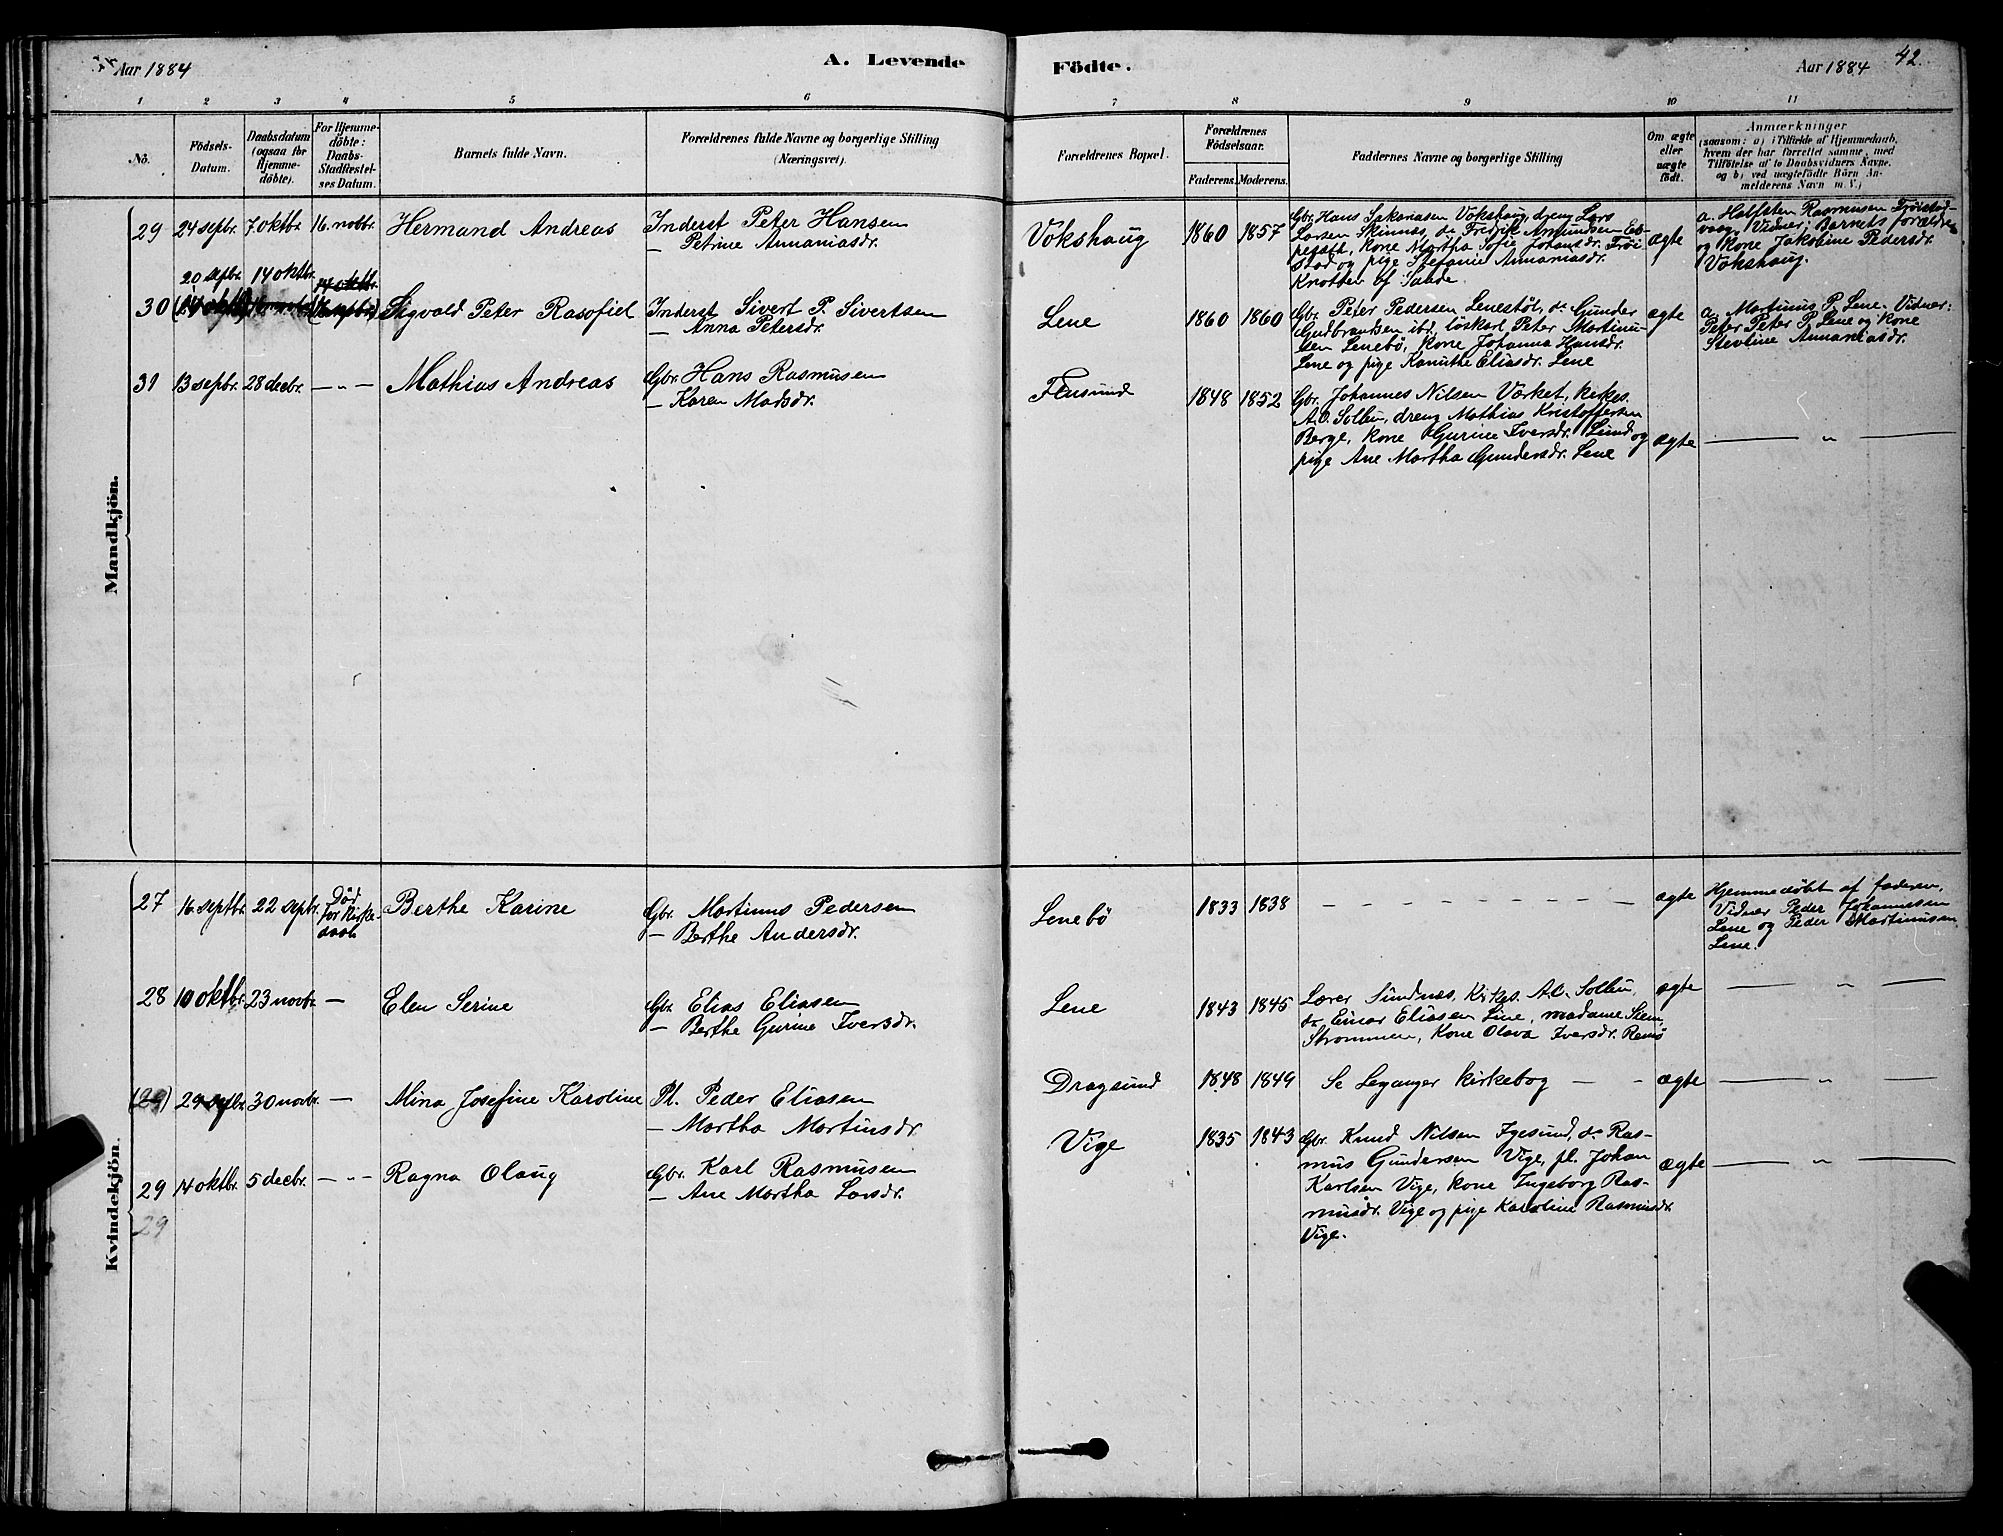 Aar 1884
A. Levende
Födte.
Aar 1884
42.
1 2 3 4 5 6 7 8 9 10 11
No.
Födsels-
Datum.
Daabsdatum
(ogsaa for
Hjemme-
döbte).
For Hjemme-
döbte:
Daabs-
Stadfæstel-
ses Datum.
Barnets fulde Navn.
Forældrenes fulde Navne og borgerlige Stilling
(Næringsvei).
Forældrenes Bopæl.
Forældrenes
Födselsaar.
Faderens. Moderens.
Faddernes Navne og borgerlige Stilling
Om ægte
eller
uægte
født.
Anmærkninger
(saasom: a) i Tilfælde af Hjemmedaab,
hvem der har forrettet samme, med
Tilföielse af to Daabsvidners Navne.
og b) ved uægtefödte Börn An-
melderens Navn m. V.)
Mandkjön.
29 24 septbr. 7 oktbr. 16. novbr. Hermand Andreas
Inderst Peter Hansen
— Petrine Annaniasdr.
Vokshaug
1860 1857
Gbr. Hans Sakariasen Vokshaug, dreng Lars
Larsen Skinnes, do Fredrik Amundsen Es-
pesæt, kone Martha Sofie Johansdr. Frøi-
stad og pige Stefanie Annaniasdr.
Knotten af Sande
ægte
a. Helfsten Rasmusen Frøistad-
vaag, Vidner, Barnets forældre
og kone Jakobine Pedersdr.
Vokshaug.
20 septbr. 14 oktbr. 14 oktbr.
30 Sigvald Peter Rasofiel
Inderst Sivert P. Sivertsen
— Anna Petersdr.
Lene
1860 1860
Gbr. Peter Pedersen Lenestøl, do Gunder
Gudbrandsen ibd, løskarl Peter Martinu-
sen Lenebö, kone Johanna Hansdr.
Lene og pige Kanuthe Eliasdr. Lene
ægte
a. Martinus P. Lene. Vidner:
Peter Peter P. Lene og kone
Stevline Annaniasdr.
31 13 septbr. 28 decbr. — „ — Mathias Andreas
Gbr. Hans Rasmusen
— Karen Madsdr.
Flusund
1848 1852
Gbr. Johannes Nilsen Vörket, kirkes.
A.O. Solbu, dreng Mathias Kristoffersen
Berge, kone Gurine Iversdr. Lund og
pige Ane Martha Gundersdr. Lene
ægte
— „ —
Kvindekjön.
27 16 septbr. 22 septbr. Död
for Kirke-
daab
Berthe Karine
Gbr. Martinus Pedersen
— Berthe Andersdr.
Lenebö
1833 1838
— — — — — — — — —
ægte
Hjemmedöbt af faderen.
Vidner Peder Johannesen
Lene og Peder Martinusen
Lene.
28 10 oktbr. 23 novbr. — Elen Serine
Gbr. Elias Eliasen
— Berthe Gurine Iversdr.
Lene
1843 1845
Lærer Sundnæs, Kirkes. A.O. Solbu,
do Einar Eliasen Lene, madame
Strommen, kone Olava Iversdr. Remö
ægte
— „ —
(29) 29 septbr. 30 novbr. — Mina Josefine Karoline
Pl. Peder Eliasen
— Martha Martinsdr.
Dragsund
1848 1849
Se Leganger kirkebog — —
ægte
— „ —
29 14 oktbr. 5 decbr. — „ — Ragna Olaug
Gbr. Karl Rasmusen
— Ane Martha Larsdr.
Vige
1835 1843
Gbr. Knud Nilsen Igesund, do Ras-
mus Gundersen Vige, pl. Johan
Karlsen Vige, kone Ingeborg Ras-
musdr. Vige og pige Karoline Rasmusdr.
Vige.
ægte
— „ —
29